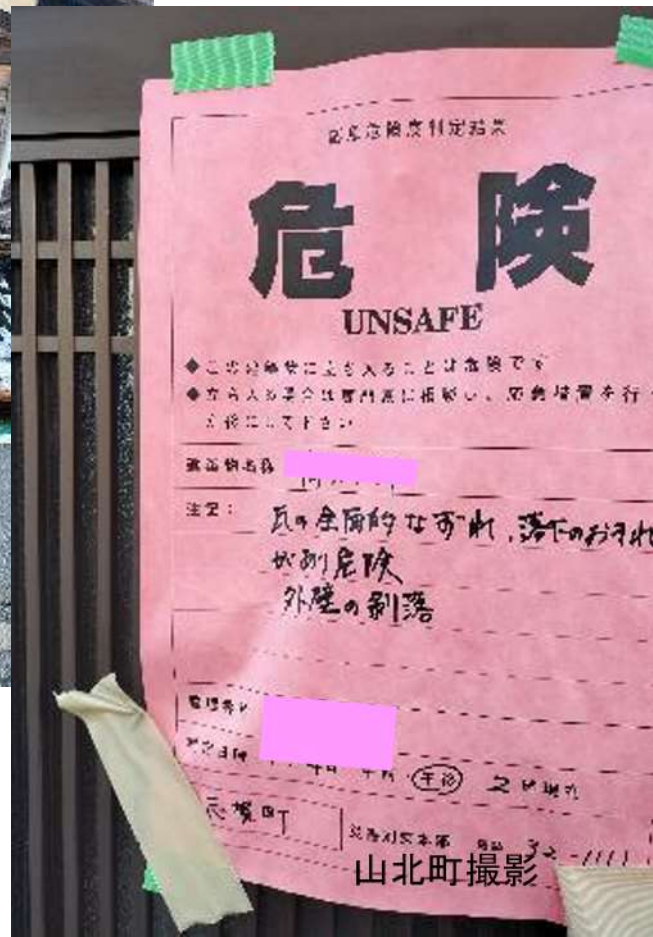 応急危険度判定結果
危 険
UNSAFE
◆この建築物に立ち入ることは危険です
◆立ち入る場合は専門家に相談し、応急措置を行
た後にして下さい
建築物名称
注記：
瓦の全面的なずれ、落下のおそれ
があり危険
外壁の剥落
午後 2時現在
志賀町
災害対策本部 電話 32-1111
山北町撮影